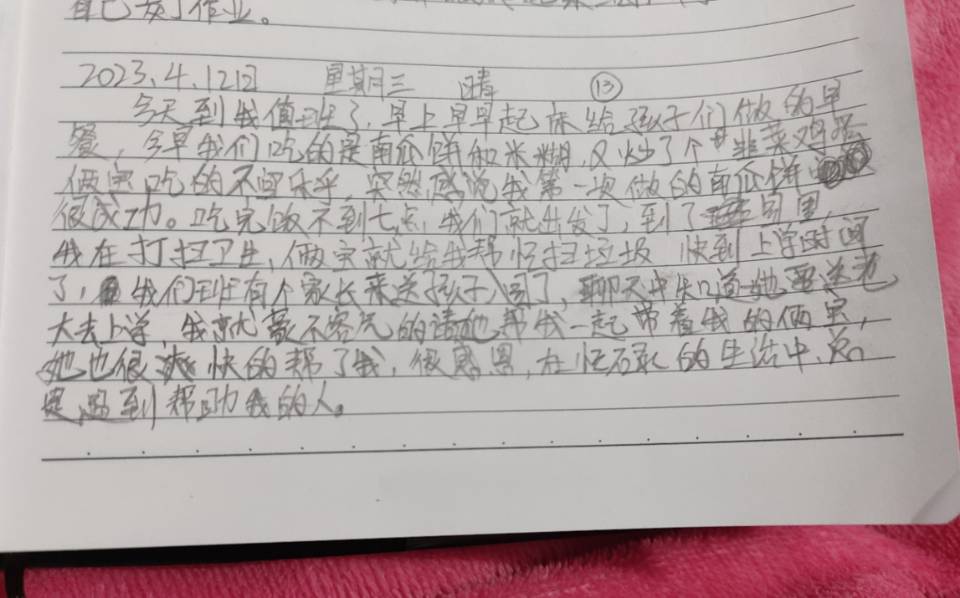 自己女了作业。
2023.4.12日 星期三 晴 ⑬
今天到我值班了，早上早早起床给孩子们做的早
餐，今早我们吃的是南瓜饼和米糊，又炒了个韭菜鸡蛋
俩宝吃的不亦乐乎，突然感觉我第一次做的南瓜饼
很成功。吃完饭不到七点，我们就出发了，到了园里，
我在打扫卫生，俩宝就给我帮忙扫垃圾 快到上学时间
了，我们班有个家长来送孩子入园了，聊天中知道她要送老
大去上学，我就毫不客气的请她帮我一起带着我的俩宝，
她也很爽快的帮了我，很感恩，在忙碌的生活中，总
是遇到帮助我的人。